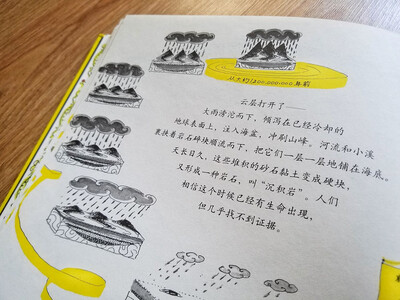 从大约1200,000,000年前
云层打开了——
大雨滂沱而下，倾泻在已经冷却的
地球表面上，注入海盆，冲刷山峰。河流和小溪
裹挟着岩石碎块顺流而下，把它们一层一层地铺在海底。
天长日久，这些堆积的砂石黏土变成硬块，
又形成一种岩石，叫“沉积岩”。人们
相信这个时候已经有生命出现，
但几乎找不到证据。